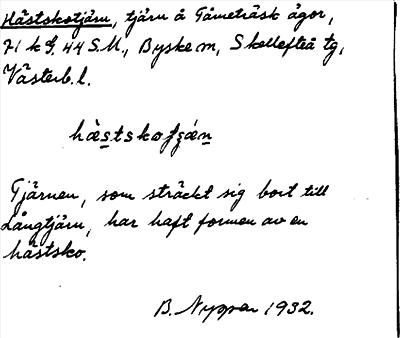 Hästskotjärn, tjärn å Tåmeträsk ägor,
71 k L. 44 S.U., Byske sn, Skellefteå tg,
Västerb. l.
hästskotjǽn
Tjärnen, som sträckt sig bort till
Långtjärn, har haft formen av en
hästsko.
B. 1932.